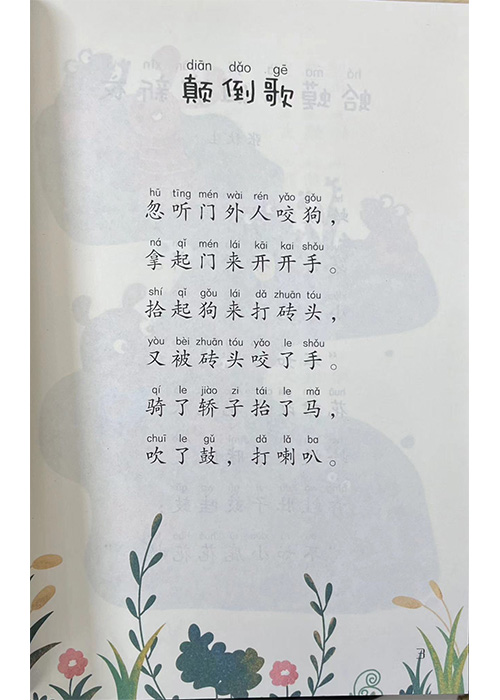 diān dǎo gē
颠倒歌
hū tīng mén wài rén yǎo gǒu
忽听门外人咬狗，
ná qǐ mén lái kāi kai shǒu
拿起门来开开手。
shí qǐ gǒu lái dǎ zhuān tóu
拾起狗来打砖头，
yòu bèi zhuān tóu yǎo le shǒu
又被砖头咬了手。
qí le jiào zi tái le mǎ
骑了轿子抬了马，
chuī le gǔ dǎ lǎ ba
吹了鼓，打喇叭。
3